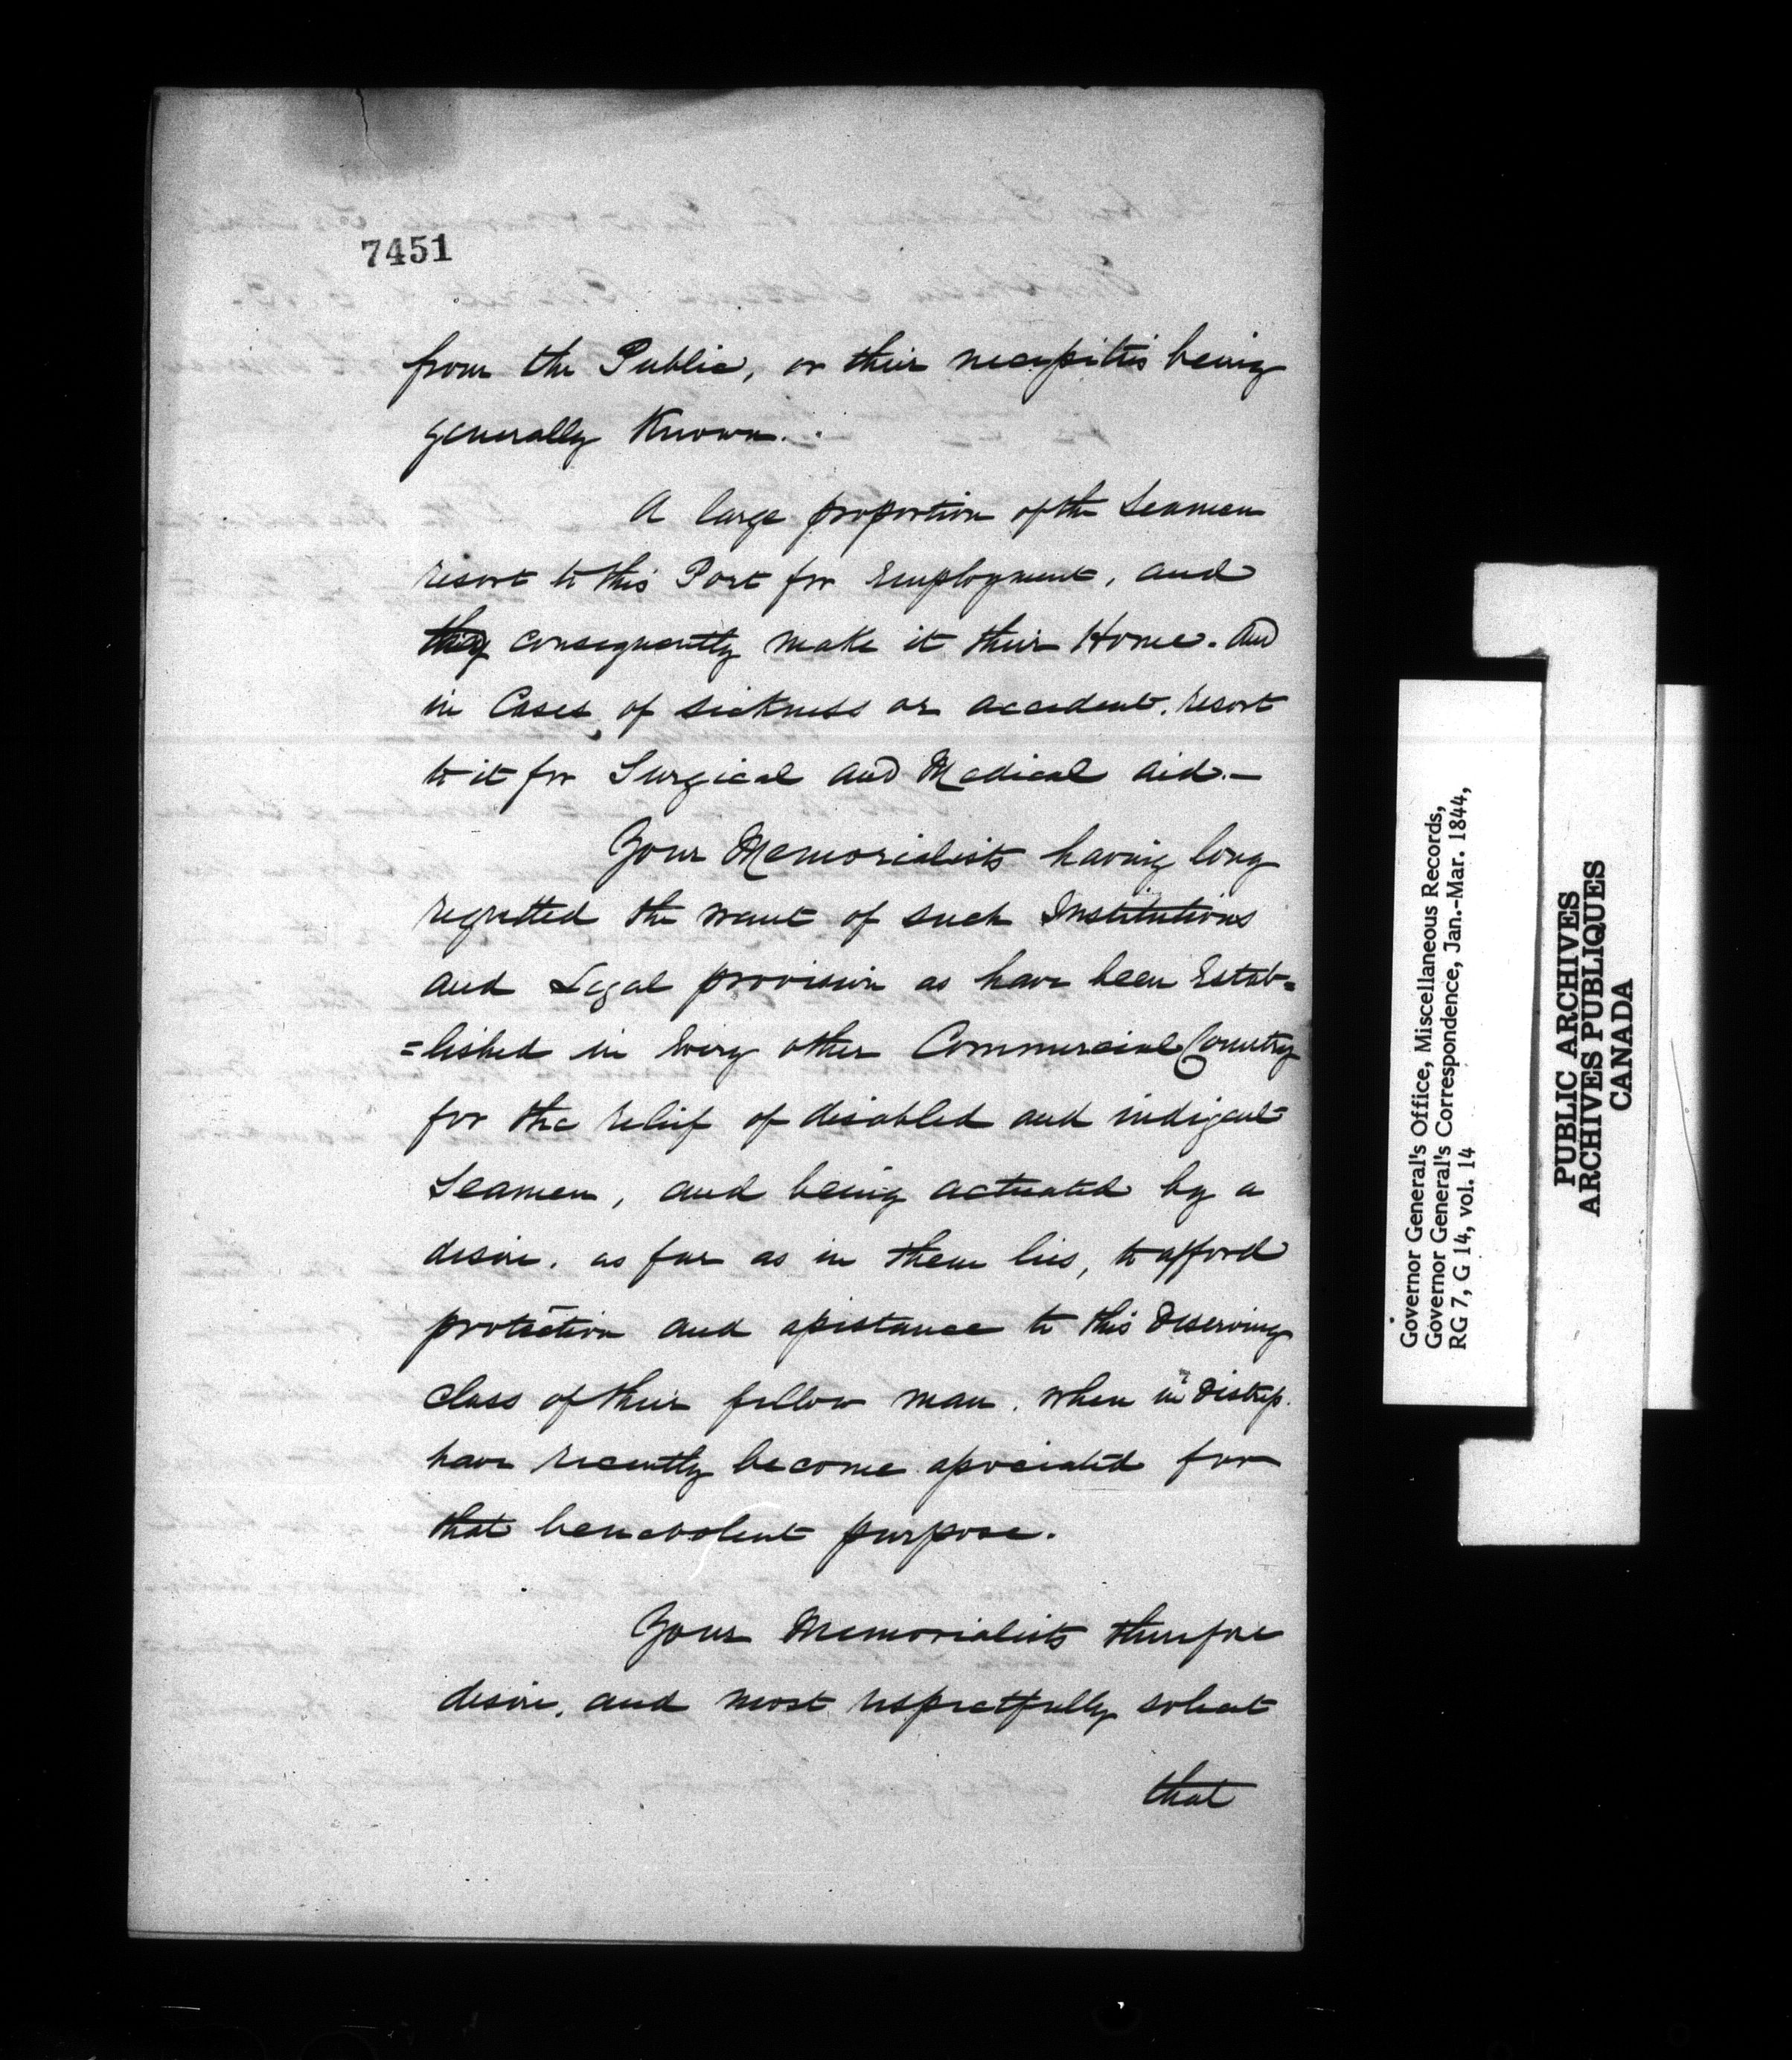 7451
from the Public, or their necessities being
generally Known.
A large proportion of the Seamen
resort to this Port for Employment, and
they consequently make it their Home. And
in Cases of sickness or accedent, resort
to it for Surgical and Medical aid.—
Your Memorialists having long
regretted the want of such Institutions
and Legal provision as have been Estab=
=lished in Every other Commercial Country
for the relief of disabled and indigent
Seamen, and being actuated by a
desire, as far as in them lies, to afford
protection and assistance to this Deserving
class of their fellow man, when in Distress.
have recently become associated for
that benevolent purpose.
Your Memorialists therefore
desire, and most respectfully solicit
that
Governor General's Office, Miscellaneous Records,
Governor General's Correspondence, Jan.-Mar. 1844,
RG 7, G 14, vol. 14
PUBLIC ARCHIVES
ARCHIVES PUBLIQUES
CANADA